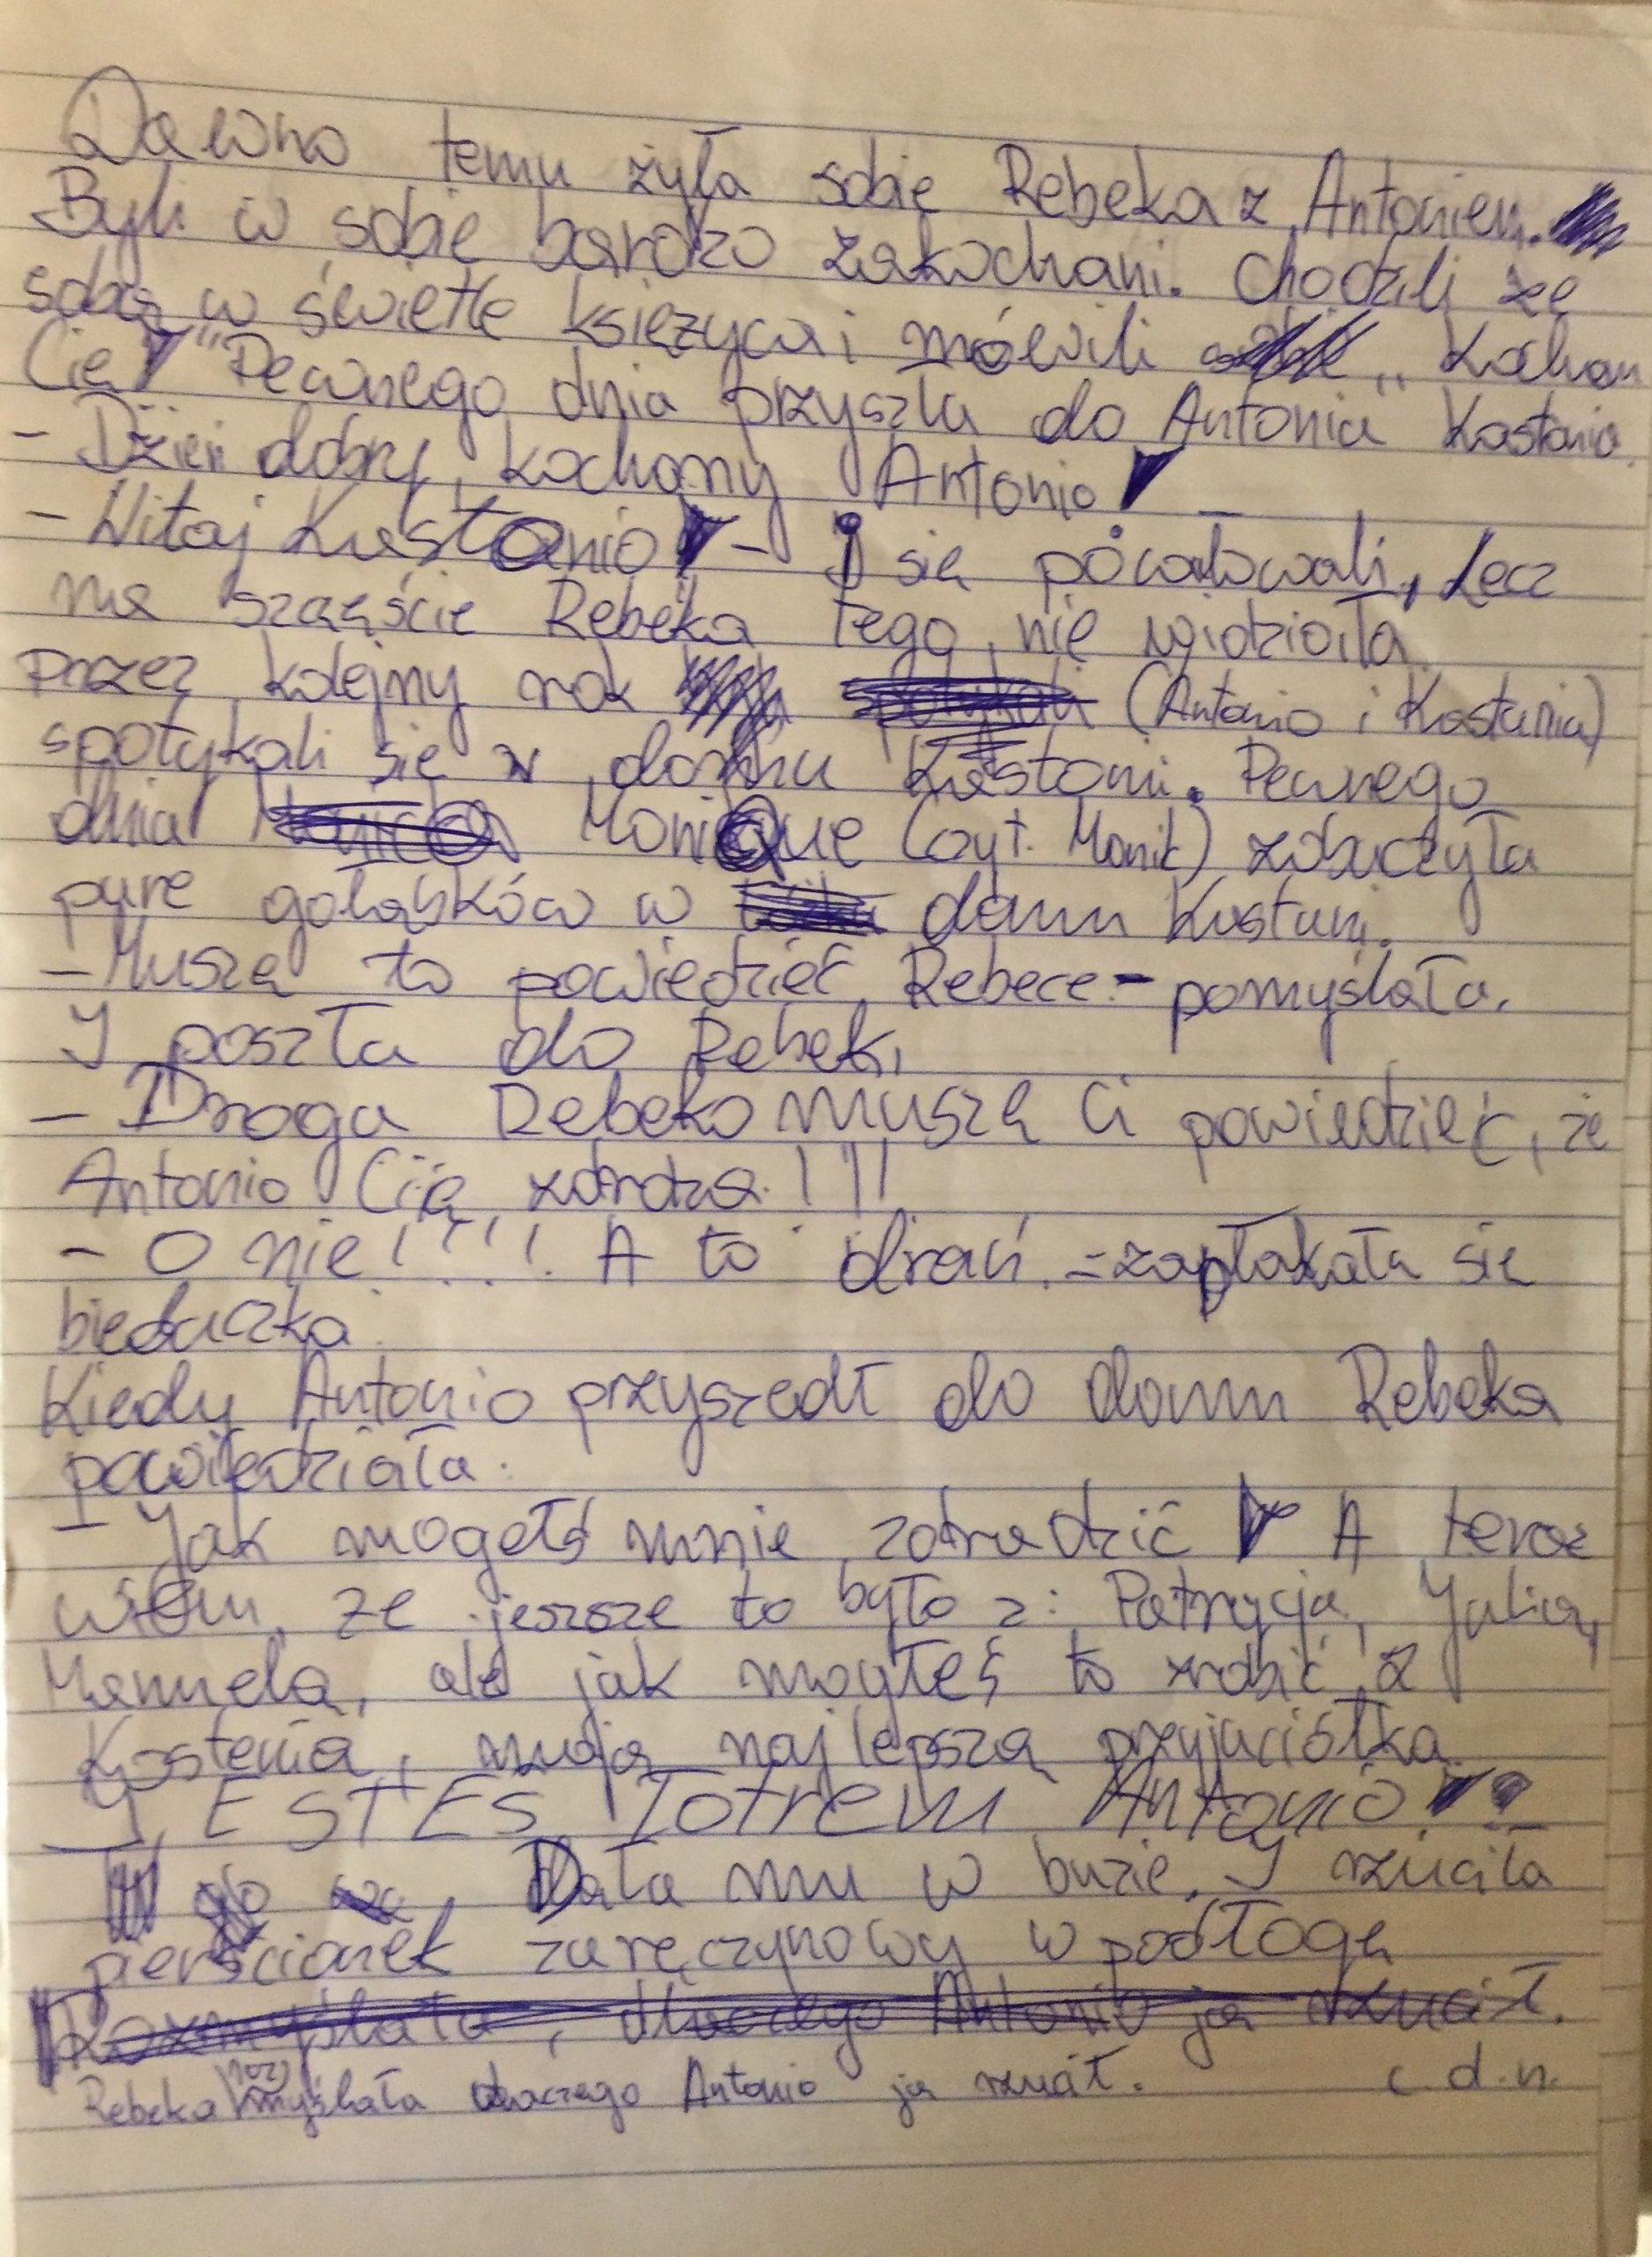 Dawno temu żyła sobie Rebeka z Antoniem.
Byli w sobie bardzo zakochani. Chodzili ze
sobą w świetle księżyca i mówili „Kocham
Cię!" Pewnego dnia przyszła do Antonia Kastania.
- Dzień dobry, kochany Antonio! -
- Witaj Kastanio! - I się pocałowali, Lecz
na szczęście Rebeka tego nie widziała.
Przez kolejny rok (Antonio i Kastania)
spotykali się w domku Kastani. Pewnego
dnia Monique (czyt. Monik) zobaczyła
parę gołąbków w domu Kastani.
- Muszę to powiedzieć Rebece. - pomyślała.
I poszła do Rebeki
- Droga Rebeko muszę Ci powiedzieć, że
Antonio Cię zdradza!!!
- O nie!!!! A to drań. - zapłakała się
biedaczka.
Kiedy Antonio przyszedł do domu Rebeka
powiedziała:
- Jak mogłeś mnie zdradzić! A teraz
wiem, że jeszsze to było z: Patrycją, Julią,
Manuelą, ale jak mogłeś to zrobić z
Kastanią, moją najlepszą przyjaciółką.
JESTEŚ łotrem Antonio! -
Dała mu w buzie. I rzuciła
pierścionek zaręczynowy w podłogę
Rozmyślała, dlaczego Antonio ją rzucił.
Rebeka rozmyślała dlaczego Antonio ją rzucił. c.d.n.